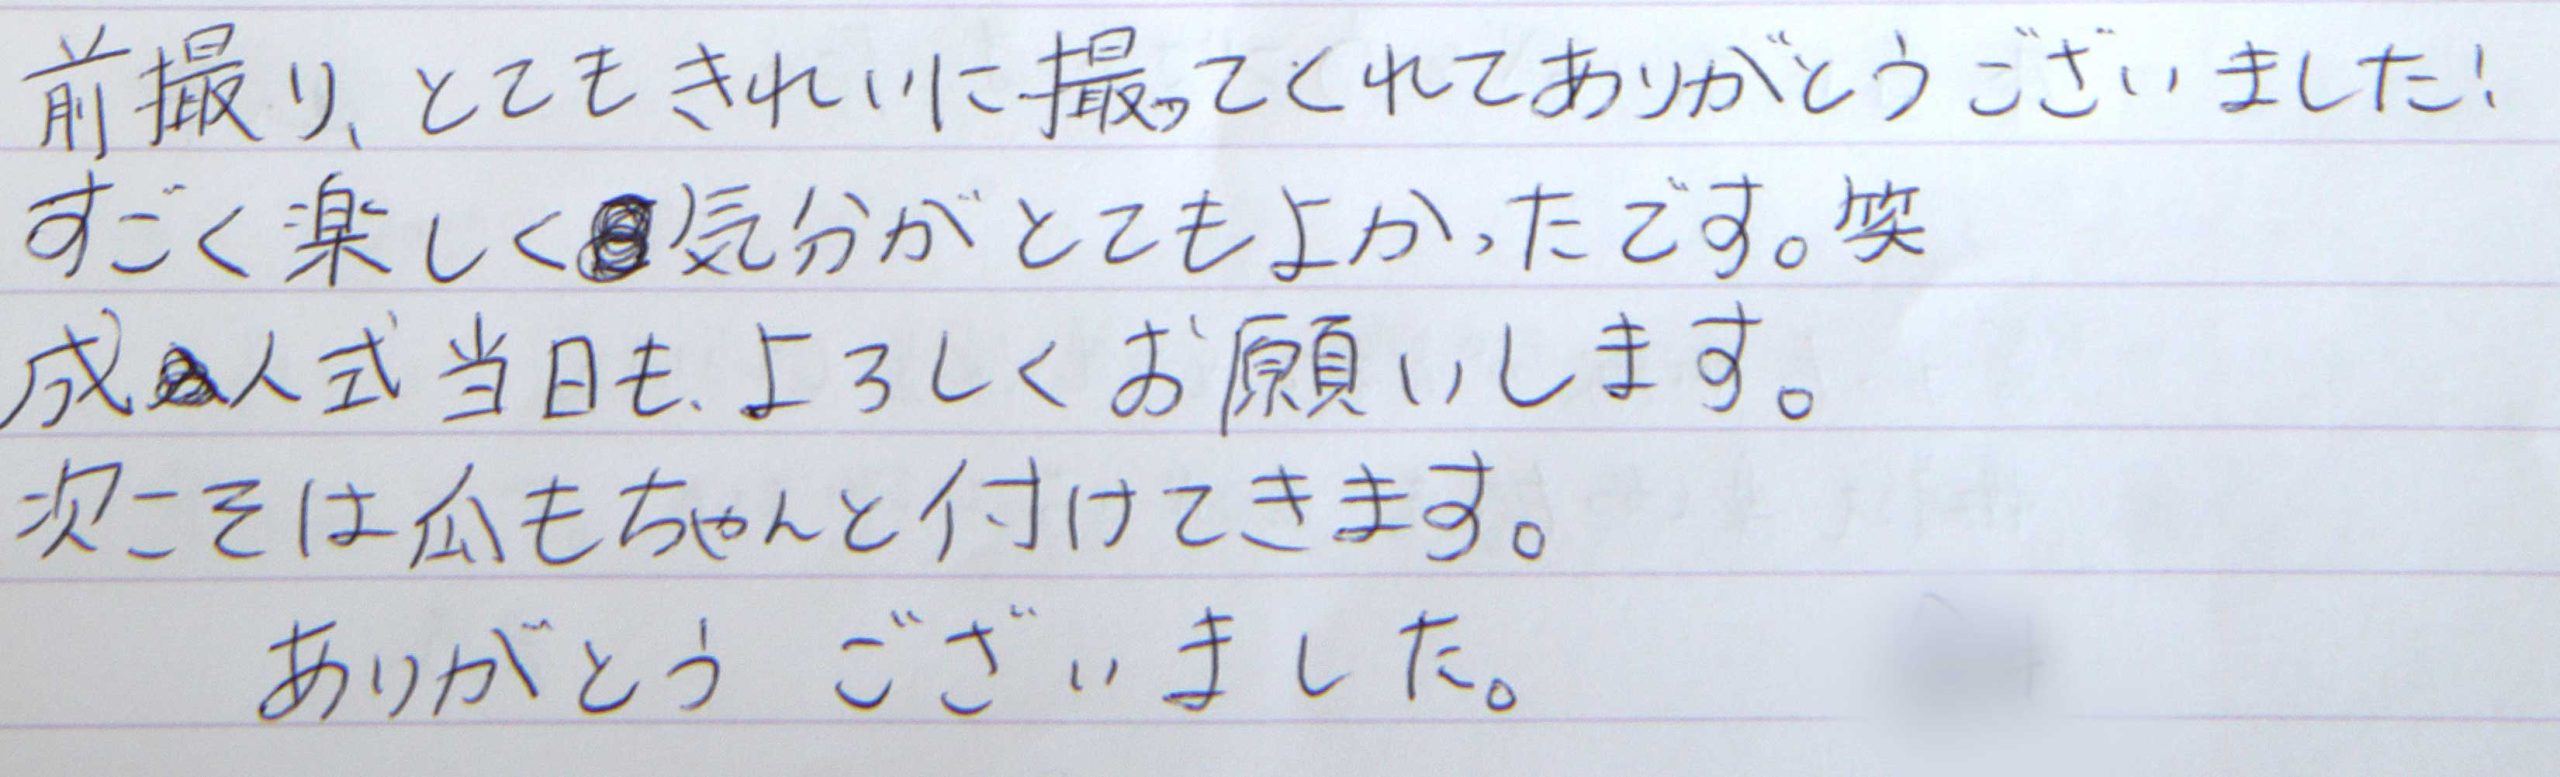 前撮り、とてもきれいに撮ってくれてありがとうございました!
すごく楽しく気分がとてもよかったです。笑
成人式当日も、よろしくお願いします。
次こそは瓜もちゃんと付けてきます。
ありがとうございました。